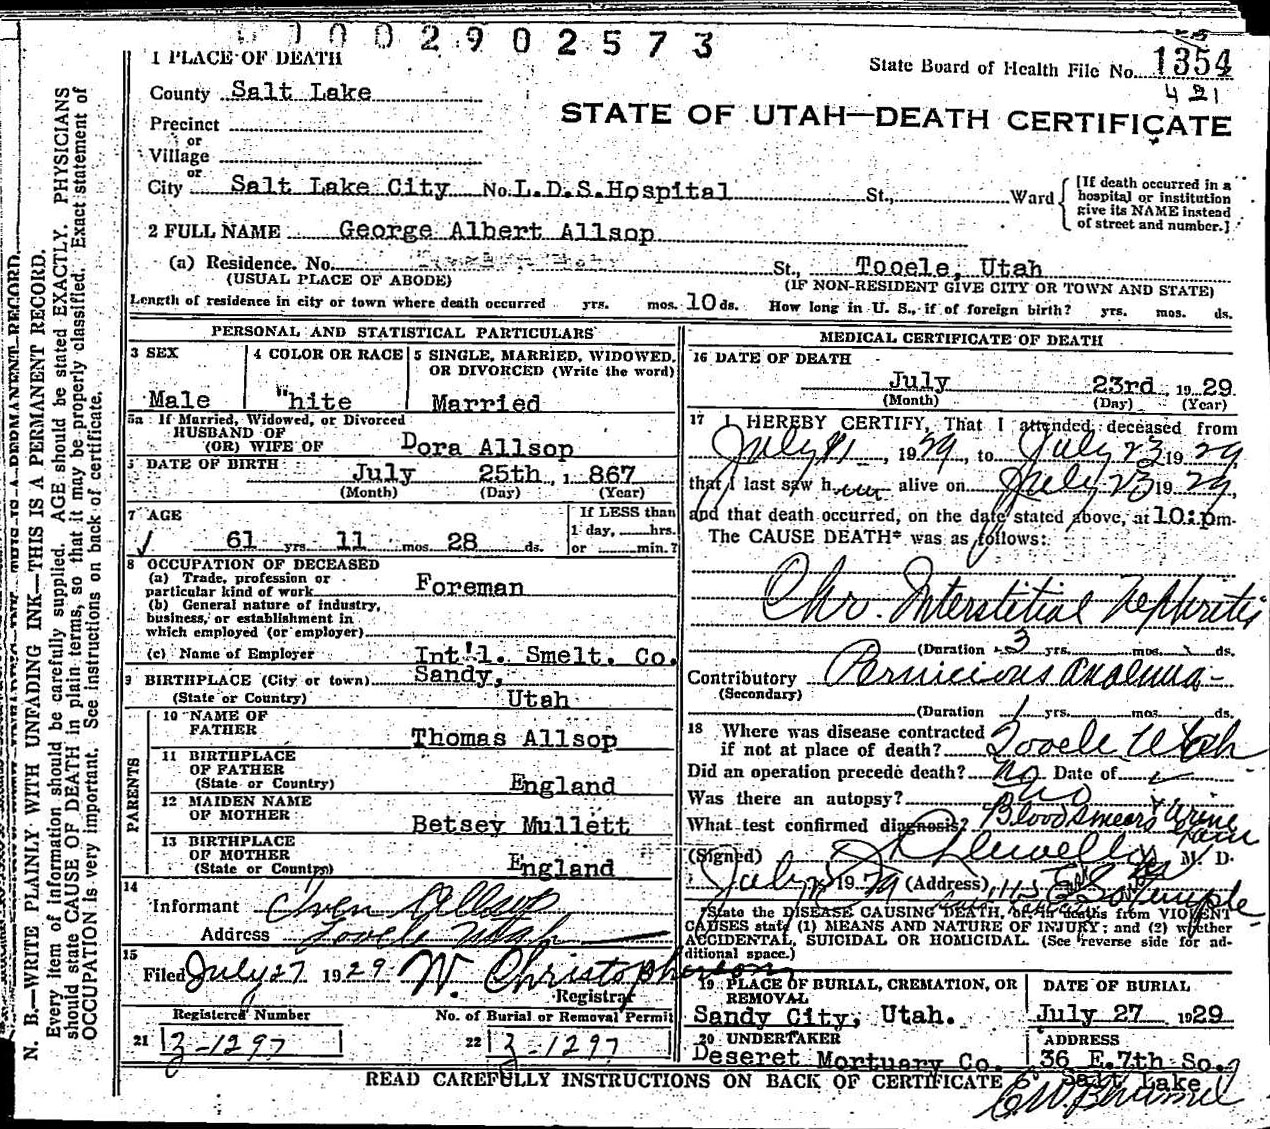 0 1 0 0 2 9 0 2 5 7 3
1 PLACE OF DEATH
State Board of Health File No. 1354
421
County Salt Lake
STATE OF UTAH—DEATH CERTIFICATE
Precinct
or
Village
or
City Salt Lake City No. L.D.S. Hospital St., Ward
[If death occurred in a
hospital or institution
give its NAME instead
of street and number.]
2 FULL NAME George Albert Allsop
(a) Residence. No. St., Tooele, Utah
(USUAL PLACE OF ABODE) (IF NON-RESIDENT GIVE CITY OR TOWN AND STATE)
Length of residence in city or town where death occurred yrs. mos. 10 ds. How long in U. S., if of foreign birth? yrs. mos. ds.
PERSONAL AND STATISTICAL PARTICULARS
3 SEX
Male
4 COLOR OR RACE
"hite
5 SINGLE, MARRIED, WIDOWED.
OR DIVORCED (Write the word)
Married
5a If Married, Widowed, or Divorced
HUSBAND OF
(OR) WIFE OF Dora Allsop
DATE OF BIRTH July 25th, 1 867
(Month) (Day) (Year)
7 AGE
61 yrs. 11 mos. 28 ds.
If LESS than
1 day, hrs.
or min.?
8 OCCUPATION OF DECEASED
(a) Trade, profession or
particular kind of work Foreman
(b) General nature of industry,
business, or establishment in
which employed (or employer)
(c) Name of Employer Int'l. Smelt. Co.
9 BIRTHPLACE (City or town) Sandy,
(State or Country) Utah
PARENTS
10 NAME OF
FATHER Thomas Allsop
11 BIRTHPLACE
OF FATHER
(State or Country) England
12 MAIDEN NAME
OF MOTHER Betsey Mullett
13 BIRTHPLACE
OF MOTHER
(State or Country) England
14
Informant Allsop
Address Tooele Utah
15
Filed July 27 1929 W. Christopherson
Registrar
Registered Number
21 3-1297
No. of Burial or Removal Permit
22 3-1297
MEDICAL CERTIFICATE OF DEATH
16 DATE OF DEATH
July 23rd, 1929
(Month) (Day) (Year)
17 I HEREBY CERTIFY, That I attended deceased from
July 11, 1929, to July 23 1929
that I last saw h alive on July 23 1929,
and that death occurred, on the date stated above, at 10:pm.
The CAUSE DEATH* was as follows:
Chr. Interstitial Nephritis
(Duration 3 yrs. mos. ds.
Contributory Pernicious
(Secondary)
(Duration 1 yrs. mos. ds.
18 Where was disease contracted
if not at place of death? Tooele Utah
Did an operation precede death? no Date of
Was there an autopsy? no
What test confirmed diagnosis? Blood smears & Urine
(Signed) M. D.
July 1929 (Address) Temple
*State the DISEASE CAUSING DEATH, or, in deaths from VIOLENT
CAUSES state (1) MEANS AND NATURE OF INJURY; and (2) whether
ACCIDENTAL, SUICIDAL OR HOMICIDAL. (See reverse side for ad-
ditional space.)
19 PLACE OF BURIAL, CREMATION, OR
REMOVAL
Sandy City, Utah.
DATE OF BURIAL
July 27 1929
20 UNDERTAKER
Deseret Mortuary Co.
ADDRESS
36 E. 7th So.
Salt Lake
READ CAREFULLY INSTRUCTIONS ON BACK OF CERTIFICATE
N. B.—WRITE PLAINLY WITH UNFADING INK—THIS IS A PERMANENT RECORD.
Every item of information should be carefully supplied. AGE should be stated EXACTLY. PHYSICIANS
should state CAUSE OF DEATH in plain terms, so that it may be properly classified. Exact statement of
OCCUPATION is very important. See instructions on back of certificate.